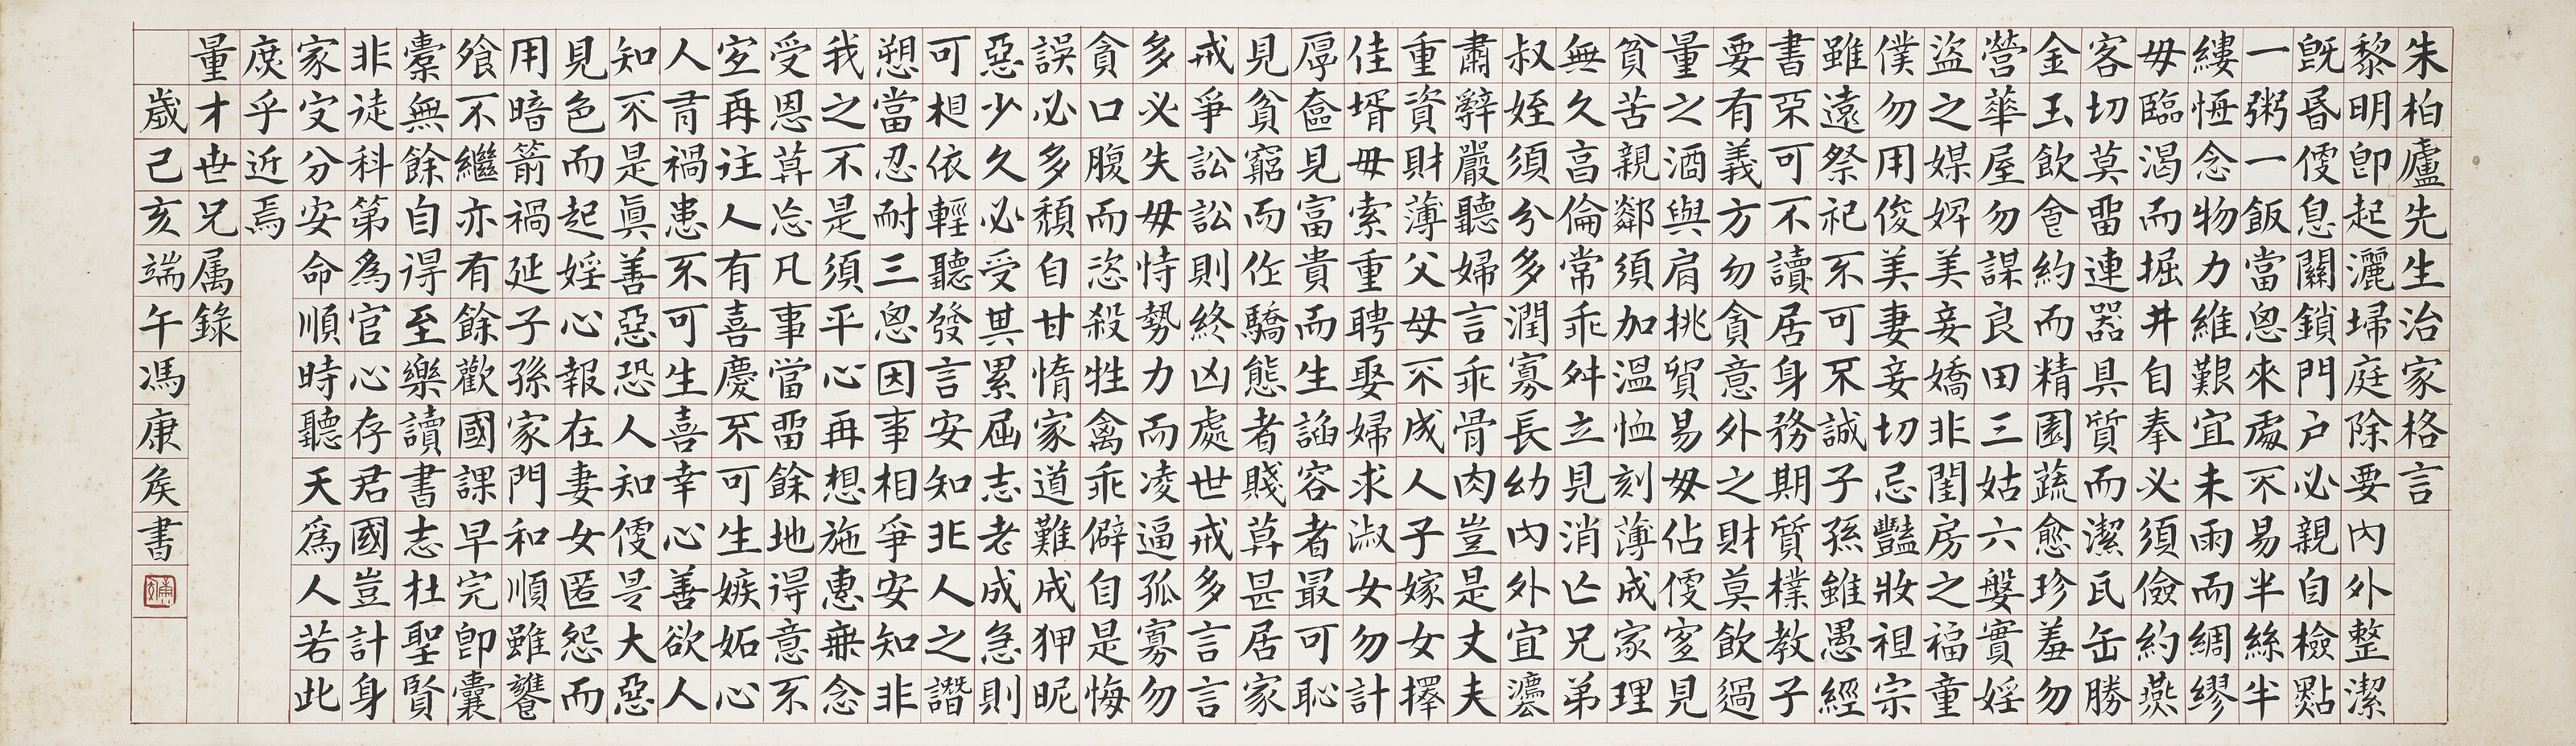 朱柏廬先生治家格言
黎明卽起灑埽庭除要內外整潔
旣昏便息關鎖門戶必親自檢點
一粥一飯當思來處不易半絲半
縷恆念物力維艱宜未雨而綢繆
毋臨渴而掘井自奉必須儉約燕
客切莫畱連器具質而潔瓦缶勝
金玉飲食約而精園蔬愈珍羞勿
營華屋勿謀良田三姑六婆實婬
盜之媒婢美妾嬌非閨房之福童
僕勿用俊美妻妾切忌豔妝祖宗
雖遠祭祀不可不誠子孫雖愚經
書不可不讀居身務期質樸教子
要有義方勿貪意外之財莫飲過
量之酒與肩挑貿易毋佔便宜見
貧苦親鄰須加溫恤刻薄成家理
無久享倫常乖舛立見消亡兄弟
叔姪須分多潤寡長幼內外宜灋
肅辭嚴聽婦言乖骨肉豈是丈夫
重資財薄父母不成人子嫁女擇
佳壻毋索重聘娶婦求淑女勿計
厚奩見富貴而生諂容者最可恥
見貧窮而作驕態者賤莫甚居家
戒爭訟訟則終凶處世戒多言言
多必失毋恃勢力而凌逼孤寡勿
貪口腹而恣殺牲禽乖僻自是悔
誤必多頹自甘惰家道難成狎昵
惡少久必受其累屈志老成急則
可相依輕聽發言安知非人之譖
愬當忍耐三思因事相爭安知非
我之不是須平心再想施惠無念
受恩莫忘凡事當畱餘地得意不
宜再往人有喜慶不可生嫉妬心
人有禍患不可生喜幸心善欲人
知不是眞善惡恐人知便是大惡
見色而起婬心報在妻女匿怨而
用暗箭禍延子孫家門和順雖饔
飧不繼亦有餘歡國課早完卽囊
橐無餘自得至樂讀書志在聖賢
非徒科第為官心存君國豈計身
家安分安命順時聽天為人若此
庶乎近焉
量才世兄属錄
歲己亥端午馮康矦書